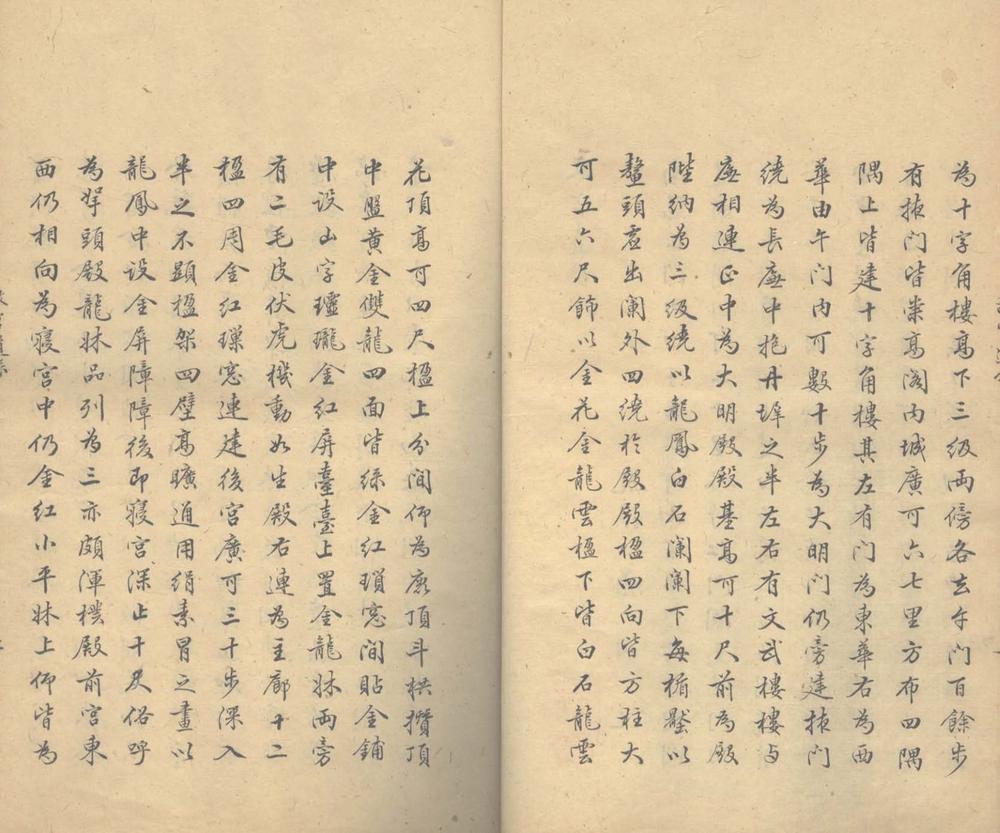 為十字角樓高下三級兩傍各去午門百餘步
有掖門皆崇高閣內城廣可六七里方布四隅
隅上皆建十字角樓其左有門為東華右為西
華由午門內可數十步為大明門仍旁建掖門
繞為長廡中抱丹墀之半左右有文武樓樓与
廡相連正中為大明殿殿基高可十尺前為殿
陛納為三級繞以龍鳳白石闌闌下每楯壓以
鰲頭虛出闌外四繞於殿殿楹四向皆方柱大
可五六尺飾以金花金龍雲楹下皆白石龍雲
花頂高可四尺楹上分間仰為鹿頂斗栱攢頂
中盤黃金雙龍四面皆緣金紅瑣窓間貼金鋪
中設山字玲瓏金紅屏臺臺上置金龍牀兩旁
有二毛皮伏虎機動如生殿右連為主廊十二
楹四周金紅瑣窓連建後宮廣可三十步深入
半之不顯楹架四壁高曠通用絹素冒之畫以
龍鳳中設金屏障障後即寢宮深止十尺俗呼
為弩頭殿龍牀品列為三亦頗渾樸殿前宮東
西仍相向為寢宮中仍金紅小平牀上仰皆為